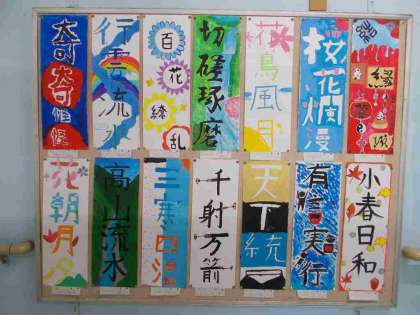 奇奇怪怪
行雲流水
百花繚乱
切磋琢磨
花鳥風月
桜花爛漫
縁
花朝月夕
高山流水
三寒四温
千射万箭
天下統一
有言実行
小春日和